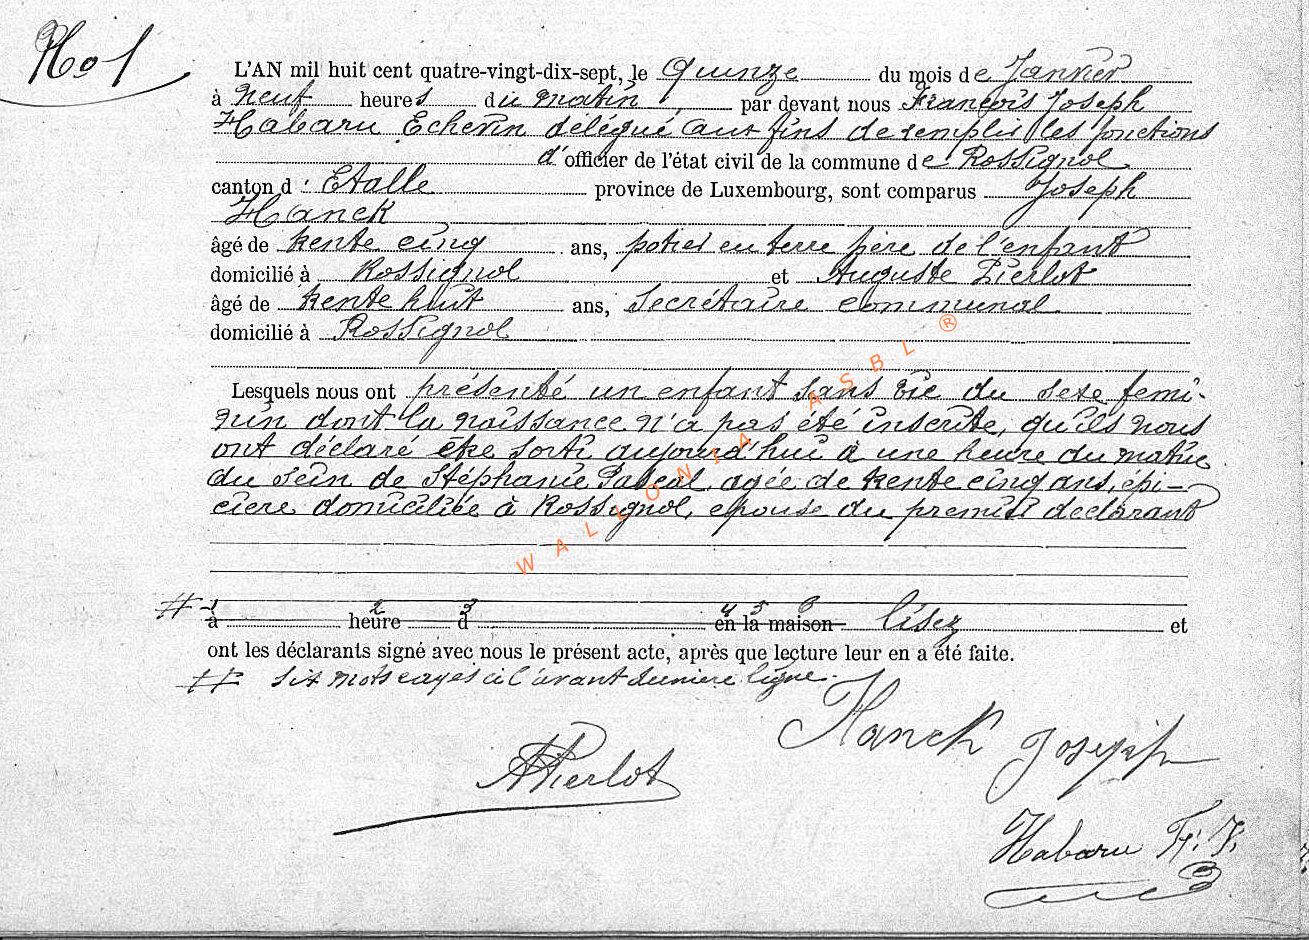 No 1
L'AN mil huit cent quatre-vingt-dix-sept, le quinze du mois de Janvier
à neuf heures du matin, par devant nous François Joseph
Habaru Echevin délégué aux fins de remplir les fonctions
d'officier de l'état civil de la commune de Rossignol
canton d'Etalle province de Luxembourg, sont comparus Joseph
Hanck
âgé de trente cinq ans, potier en terre père de l'enfant
domicilié à Rossignol et Auguste Pierlot
âgé de trente huit ans, Secrétaire communal
domicilié à Rossignol
Lesquels nous ont présenté un enfant sans vie du sexe femi-
nin dont la naissance n'a pas été inscrite, qu'ils nous
ont déclaré être sorti aujourd'hui à une heure du matin
du sein de Stéphanie Pascal agée de trente cinq ans, épi-
cière domiciliée à Rossignol, epouse du premier déclarant
# 1 2 3 4 5 6
à heure d en la maison lisez et
ont les déclarants signé avec nous le présent acte, après que lecture leur en a été faite.
# Six mots rayés à l'avant dernière ligne.
Hanck Joseph
APierlot
Habaru Fr. J.
WALLONIA ASBL ®